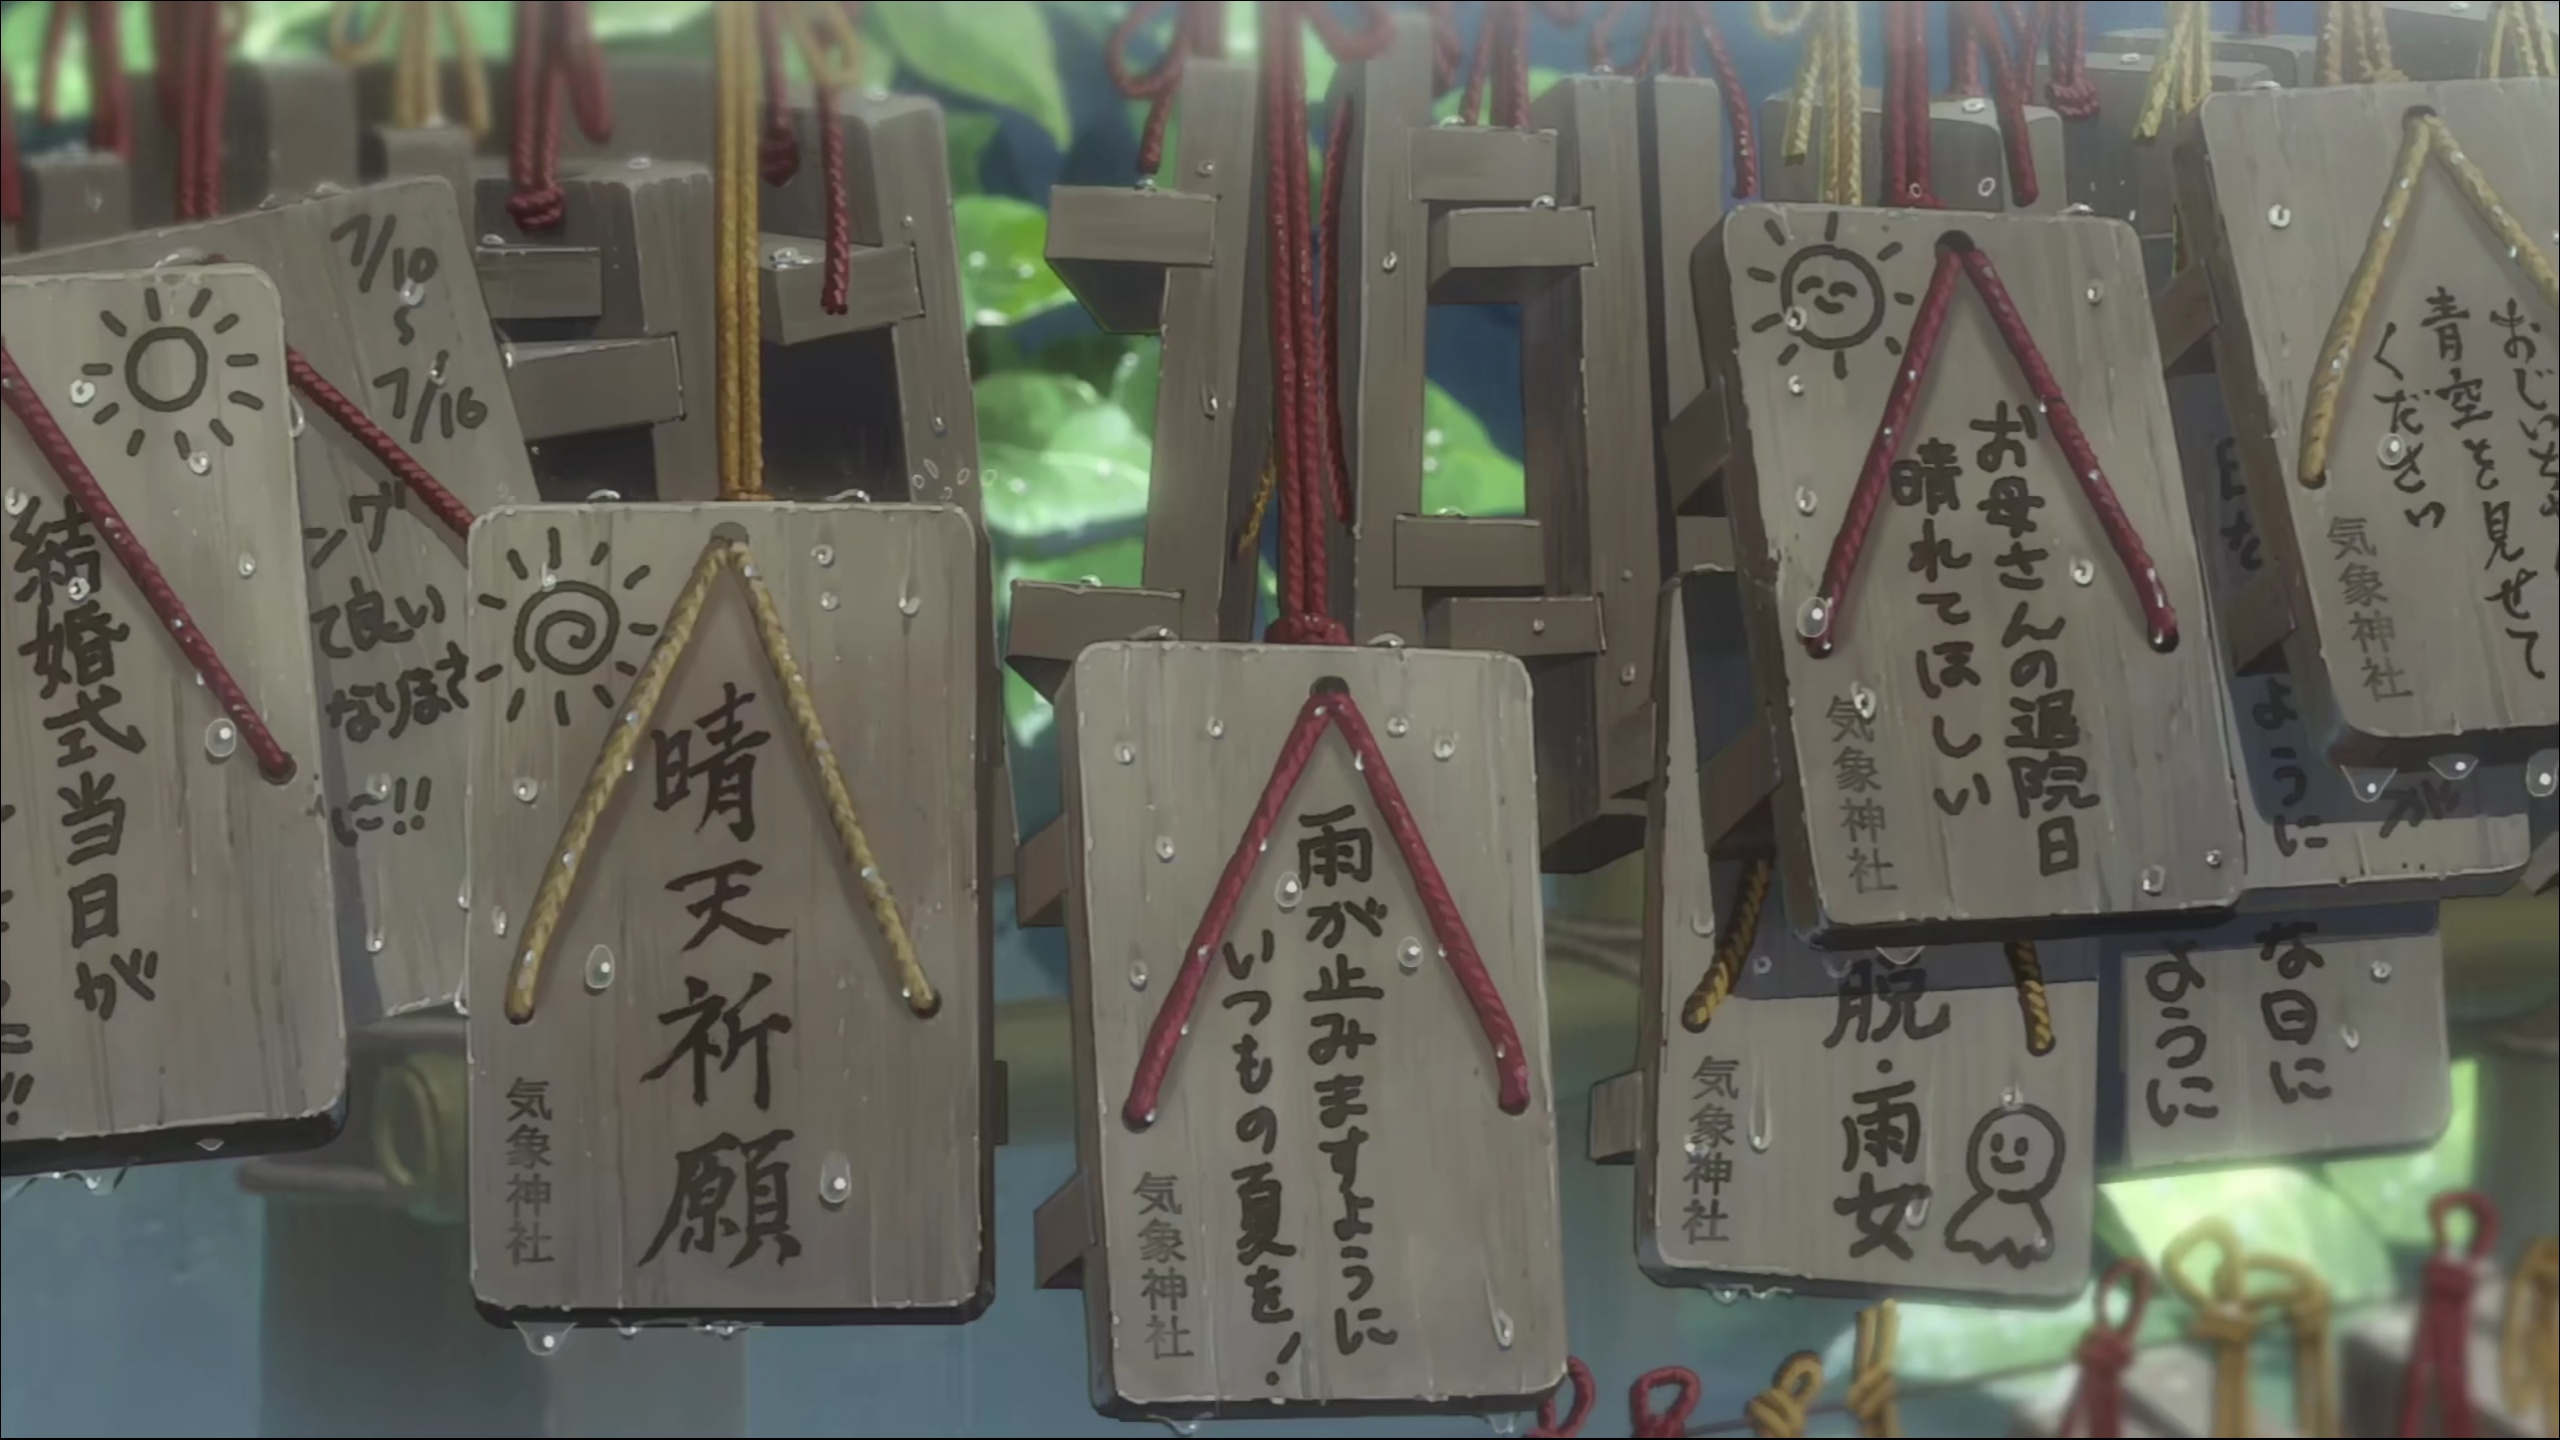 結婚式当日が
7/10
〜
7/16
ング
て良い
なりまさ
に!!
晴天祈願
気象神社
雨が止みますように
いつもの夏を!
気象神社
お母さんの退院日
晴れてほしい
気象神社
脱・雨女
気象神社
な日に
ように
ように
が
青空を見せて
ください
気象神社